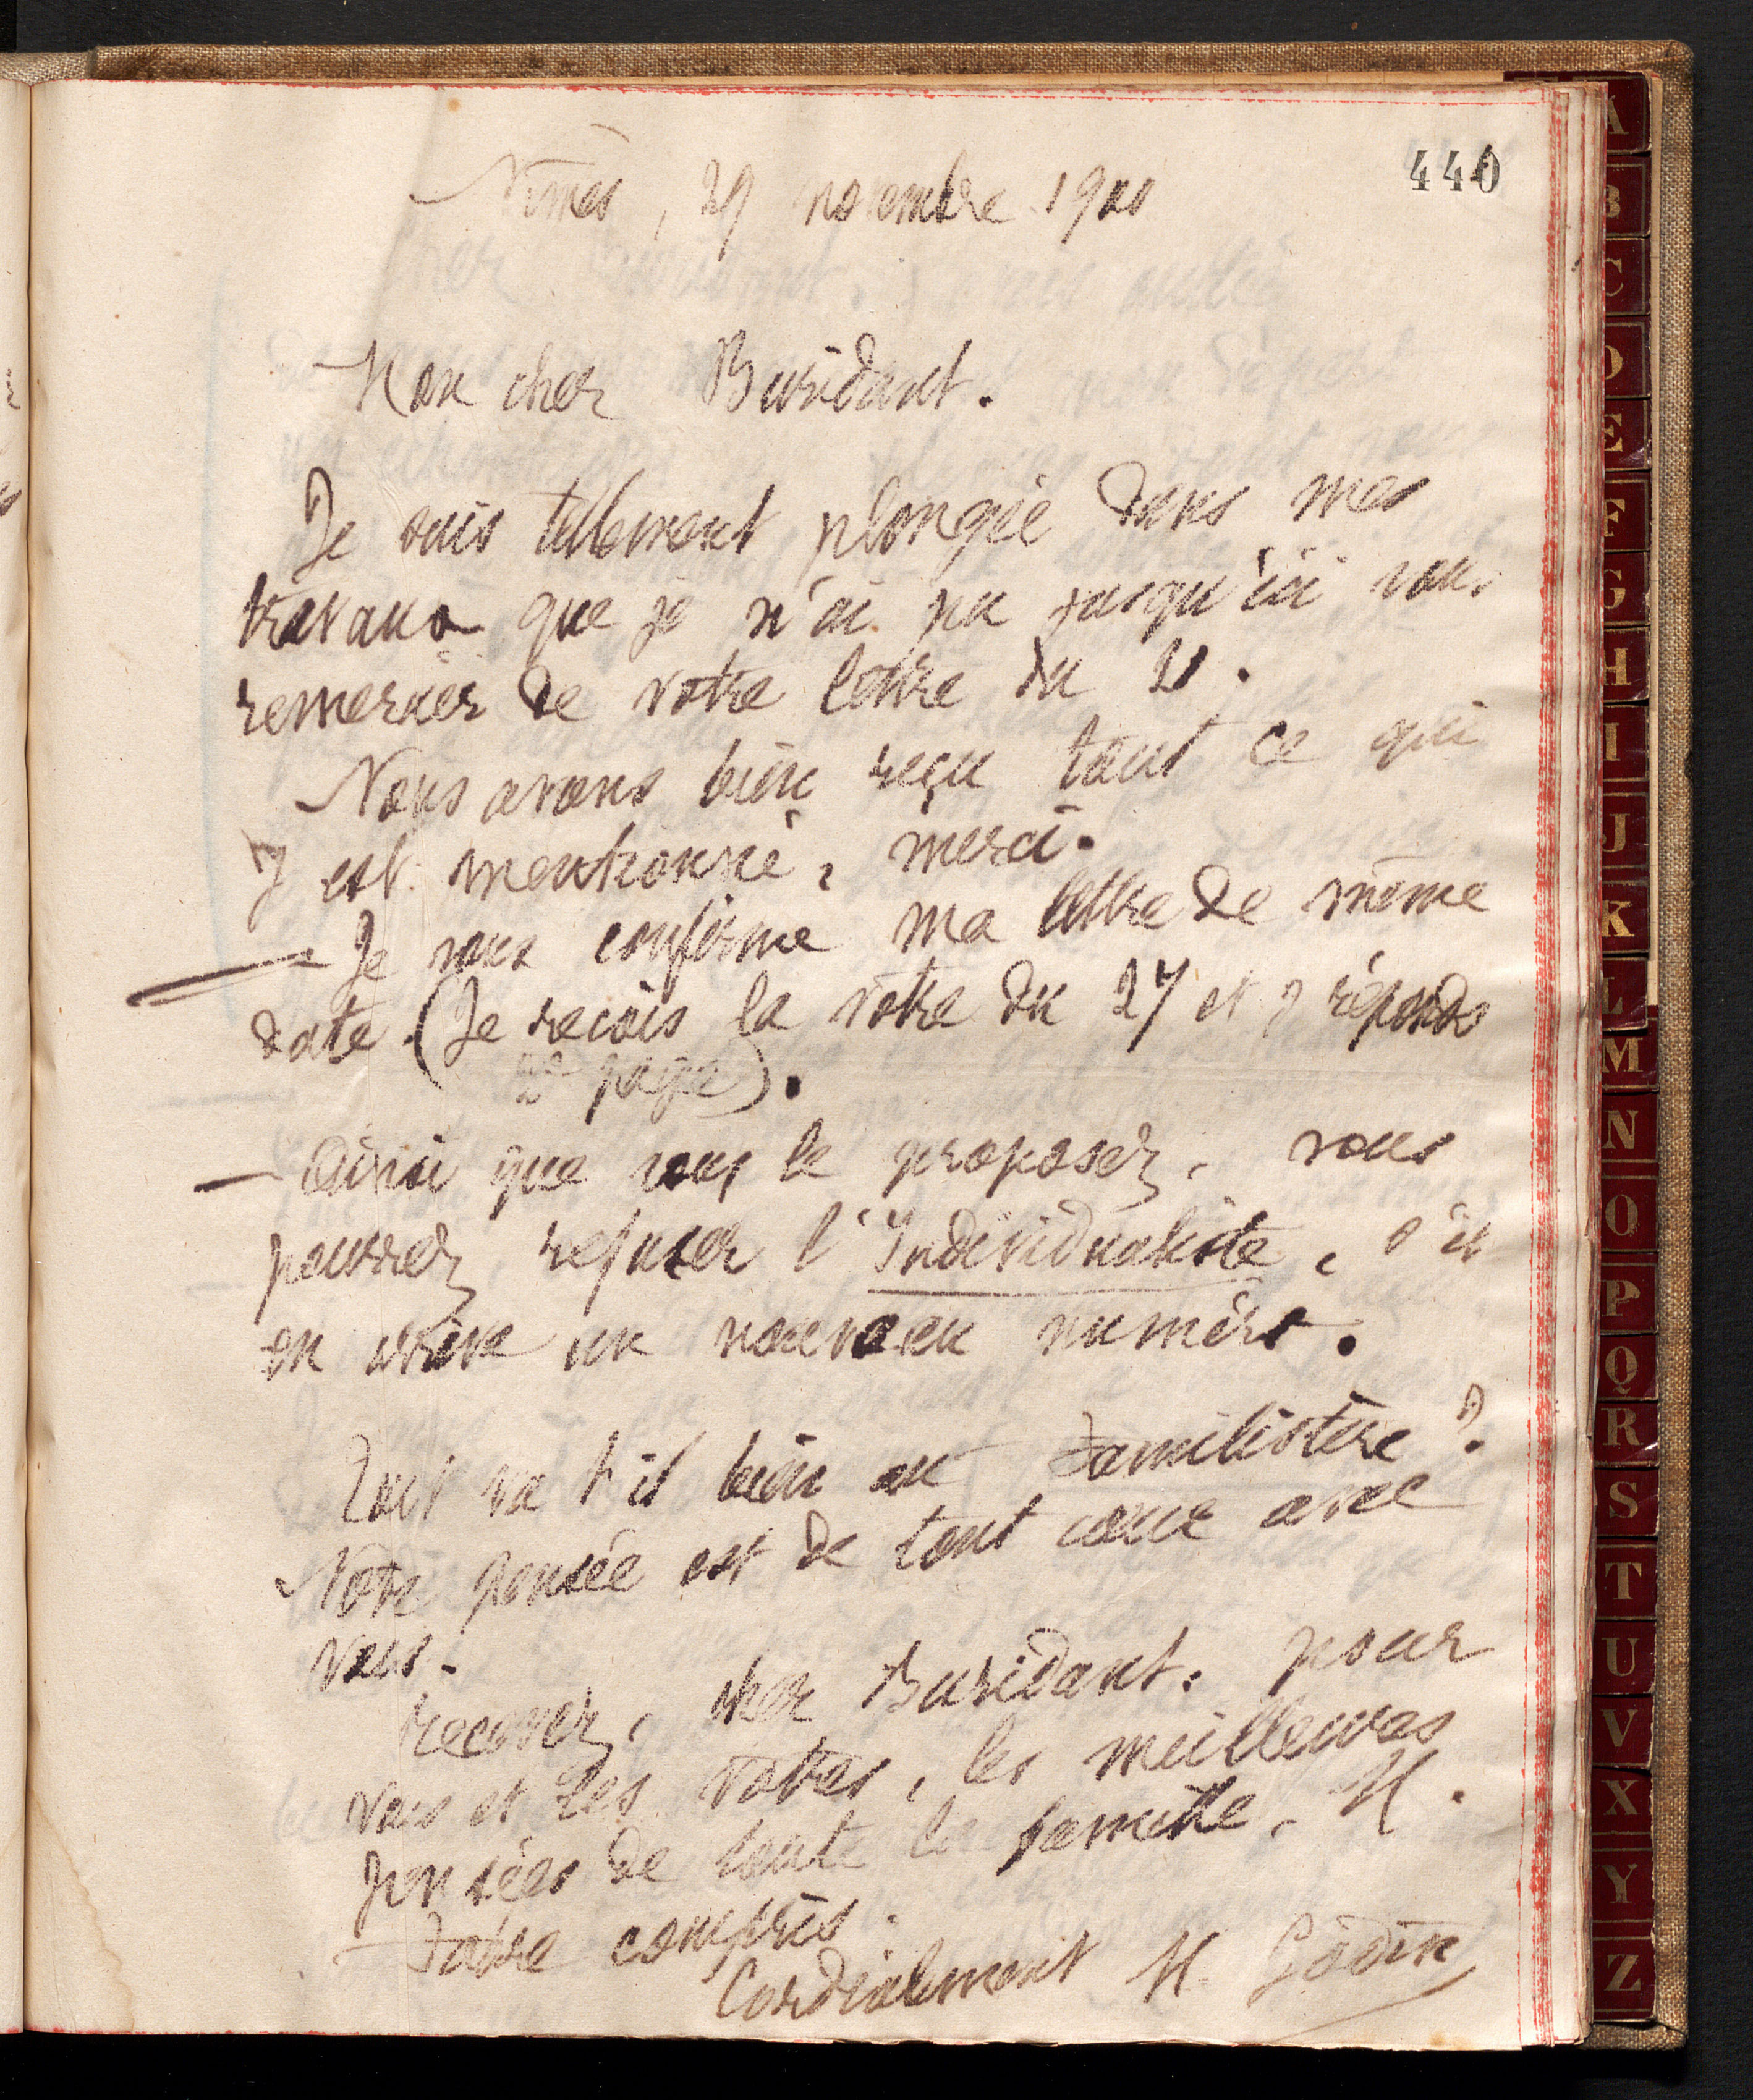 440
Nîmes, 29 novembre 1900
Mon cher Buridant.
Je suis tellement plongée dans mes
travaux que je n'ai pu jusqu'ici vous
remercier de votre lettre du
Nous avons bien reçu tout ce qui
y est mentionné, merci.
— Je vous confirme ma lettre de même
date. (Je reçois la vôtre du 27 et y réponds
2e page).
— Ainsi que vous le proposez, vous
pourrez refuser l'Individualiste, s'il
en arrive un nouveau numéro.
Tout va t il bien au Familistère?
Notre pensée est de tout cœur avec
vous.
Recevez, cher Buridant, pour
vous et les vôtres, les meilleures
pensées de toute la famille, M.
Fabre compris.
Cordialement M. Godin
A
B
C
D
E
F
G
H
I
J
K
L
M
N
O
P
Q
R
S
T
U
V
X
Y
Z